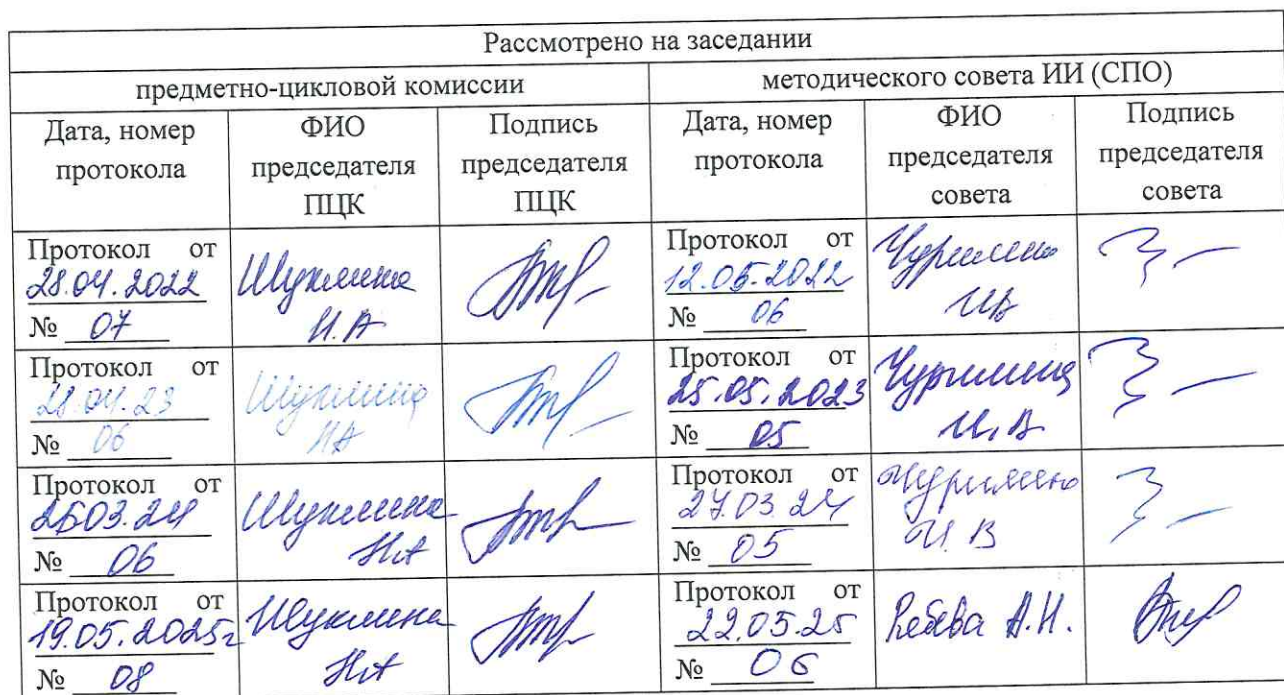 Рассмотрено на заседании
предметно-цикловой комиссии
методического совета ИИ (СПО)
Дата, номер
протокола
ФИО
председателя
ПЦК
Подпись
председателя
ПЦК
Дата, номер
протокола
ФИО
председателя
совета
Подпись
председателя
совета
Протокол от
28.04.2022
№ 07
Шуклина
Н.А
Протокол от
12.05.2022
№ 06
Чурилина
ИВ
Протокол от
28.04.23
№ 06
Шуклина
НА
Протокол от
25.05.2023
№ 05
Чурилина
И.В
Протокол от
26.03.24
№ 06
Шуклина
НА
Протокол от
27.03 24
№ 05
Чурилина
И.В
Протокол от
19.05.2025г
№ 08
Шуклина
НА
Протокол от
22.05.25
№ 06
А.Н.